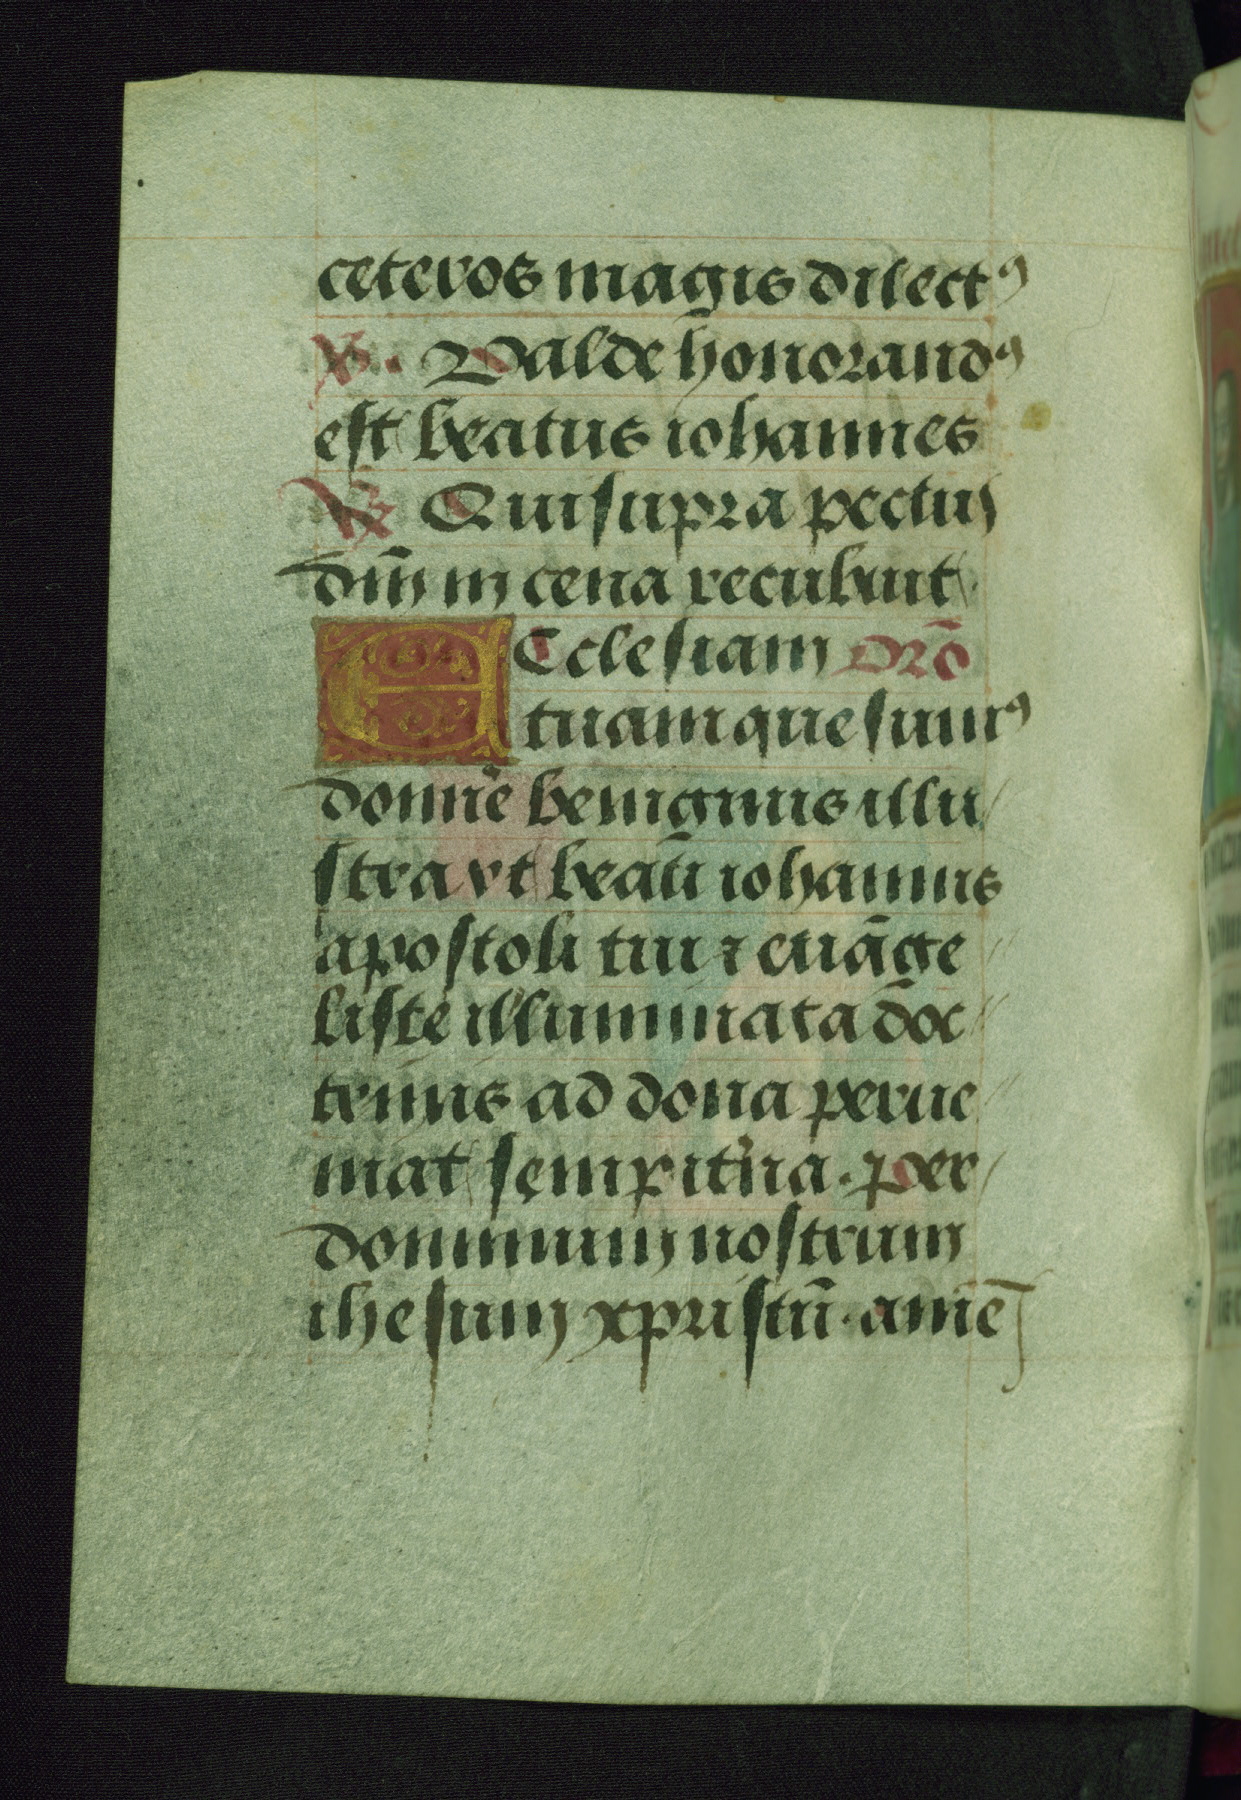 ceteros magis dilectꝰ
℣. Valde honorandꝰ
est beatus iohannes
℟ Qui supra pectus
dn̄i in cena recubuit
ECclesiam Orō
tuam quesumꝰ
domīe benignus illu
stra vt beati iohannis
apostoli tui ⁊ euāge
liste illuminata doc
trinis ad dona perue
niat sempit̄na. per
dominum nostrum
ihesum xpristū. amē